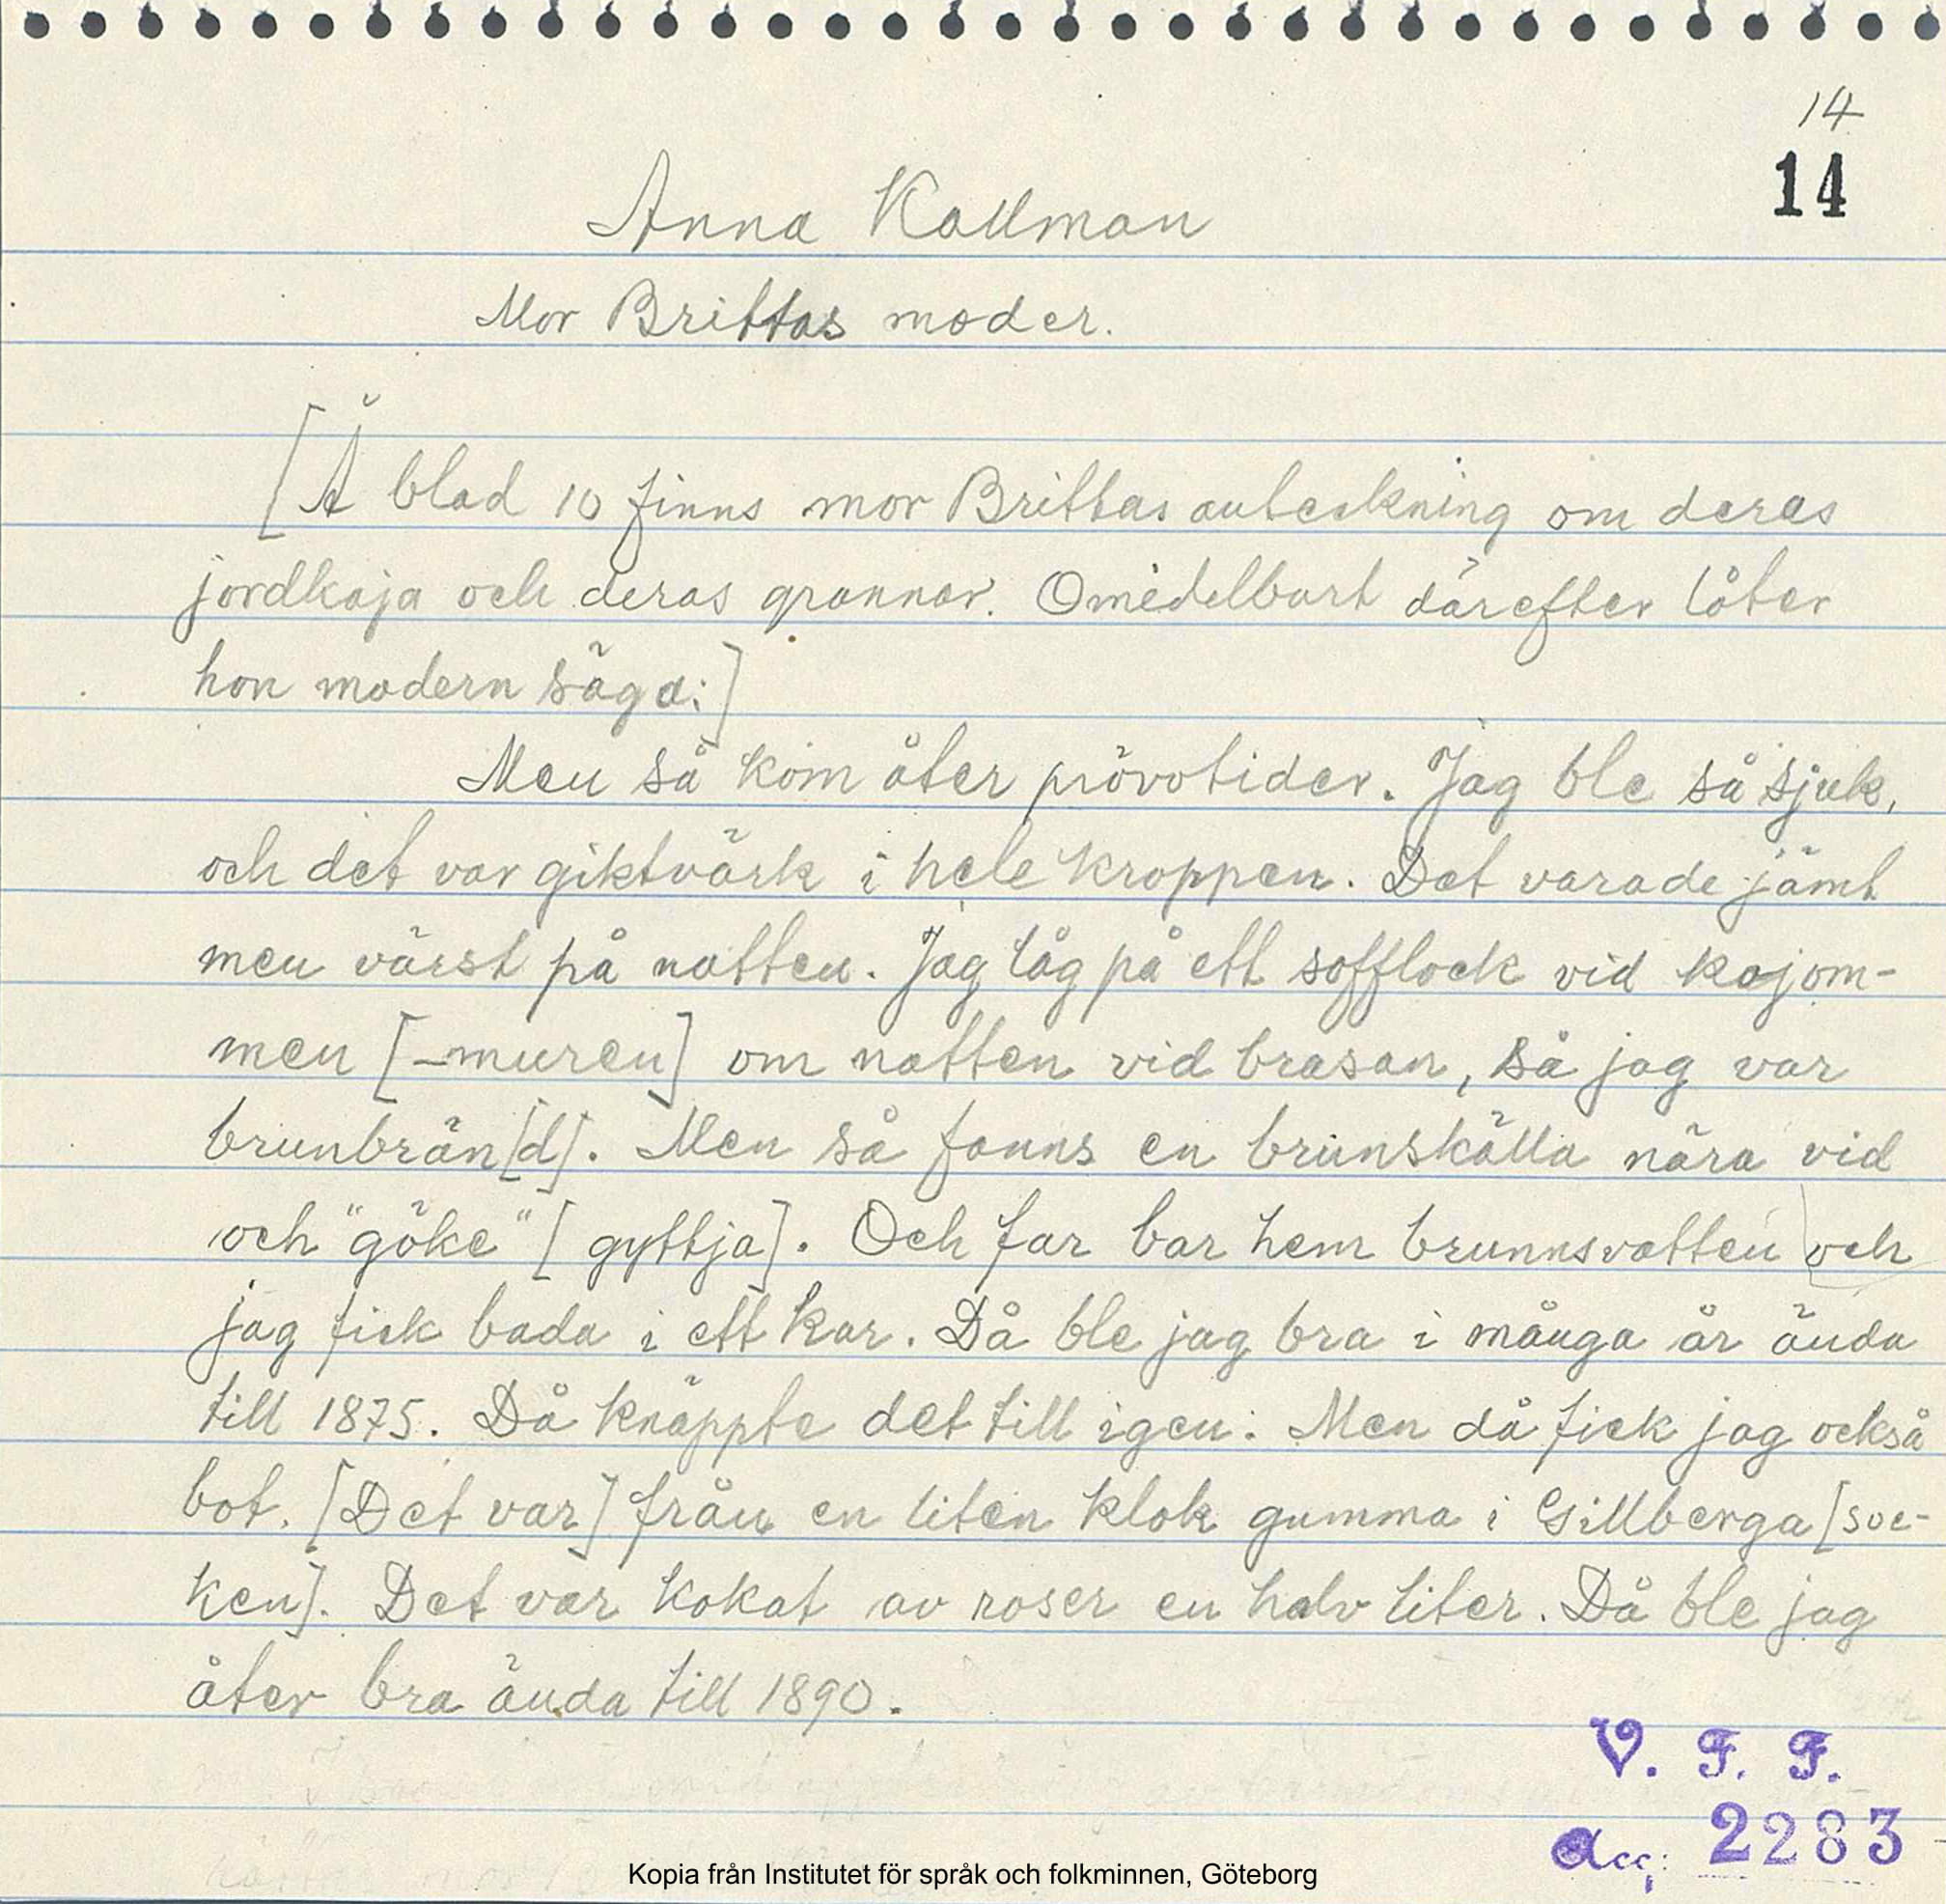 14
14
Anna Kallman
Mor Brittas moder.
[Å blad 10 finns mor Brittas anteckning om deras
jordkoja och deras grannar. Omedelbart därefter låter
hon modern säga:]
Men så kom åter prövotider. Jag ble så sjuk,
och det var giktvärk i hele kroppen. Det varade jämt
men värst på natten. Jag låg på ett sofflock vid kojom-
men [-muren] om natten vid brasan, så jag var
brunbrän[d]. Men så fanns en brunskälla nära vid
och "göke" [gyttja]. Och far bar hem brunnsvatten och
jag fick bada i ett kar. Då ble jag bra i många år ända
till 1875. Då knäppte det till igen. Men då fick jag också
bot. [Det var] från en liten klok gumma i Gillberga [soc-
ken]. Det var kokat av roser en halv liter. Då ble jag
åter bra ända till 1890.
V. F. F.
Acc: 2283
Kopia från Institutet för språk och folkminnen, Göteborg